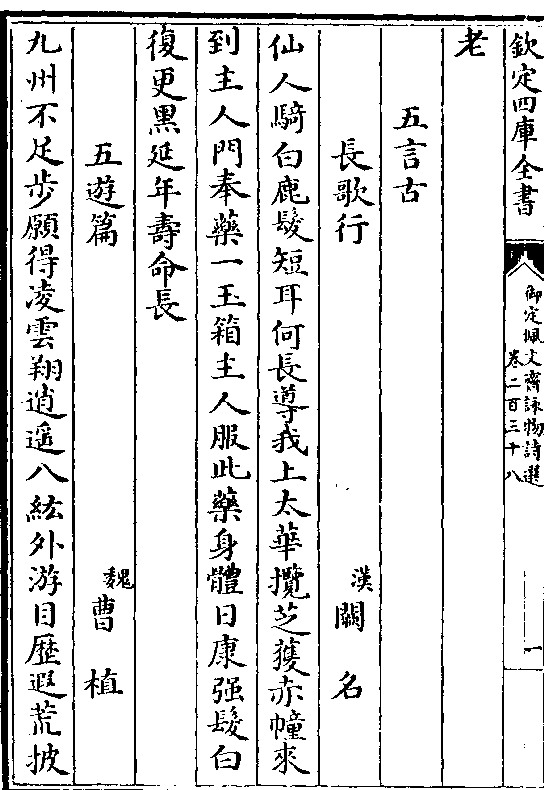 欽定四庫全書
御定佩文齋詠物詩選
卷二百三十八
一
老
五言古
長歌行
漢闕名
仙人騎白鹿髮短耳何長導我上太華攬芝獲赤幢來
到主人門奉藥一玉箱主人服此藥身體日康强髮白
復更黑延年壽命長
五遊篇
魏曹植
九州不足步願得凌雲翔逍遥八紘外游目歷遐荒披